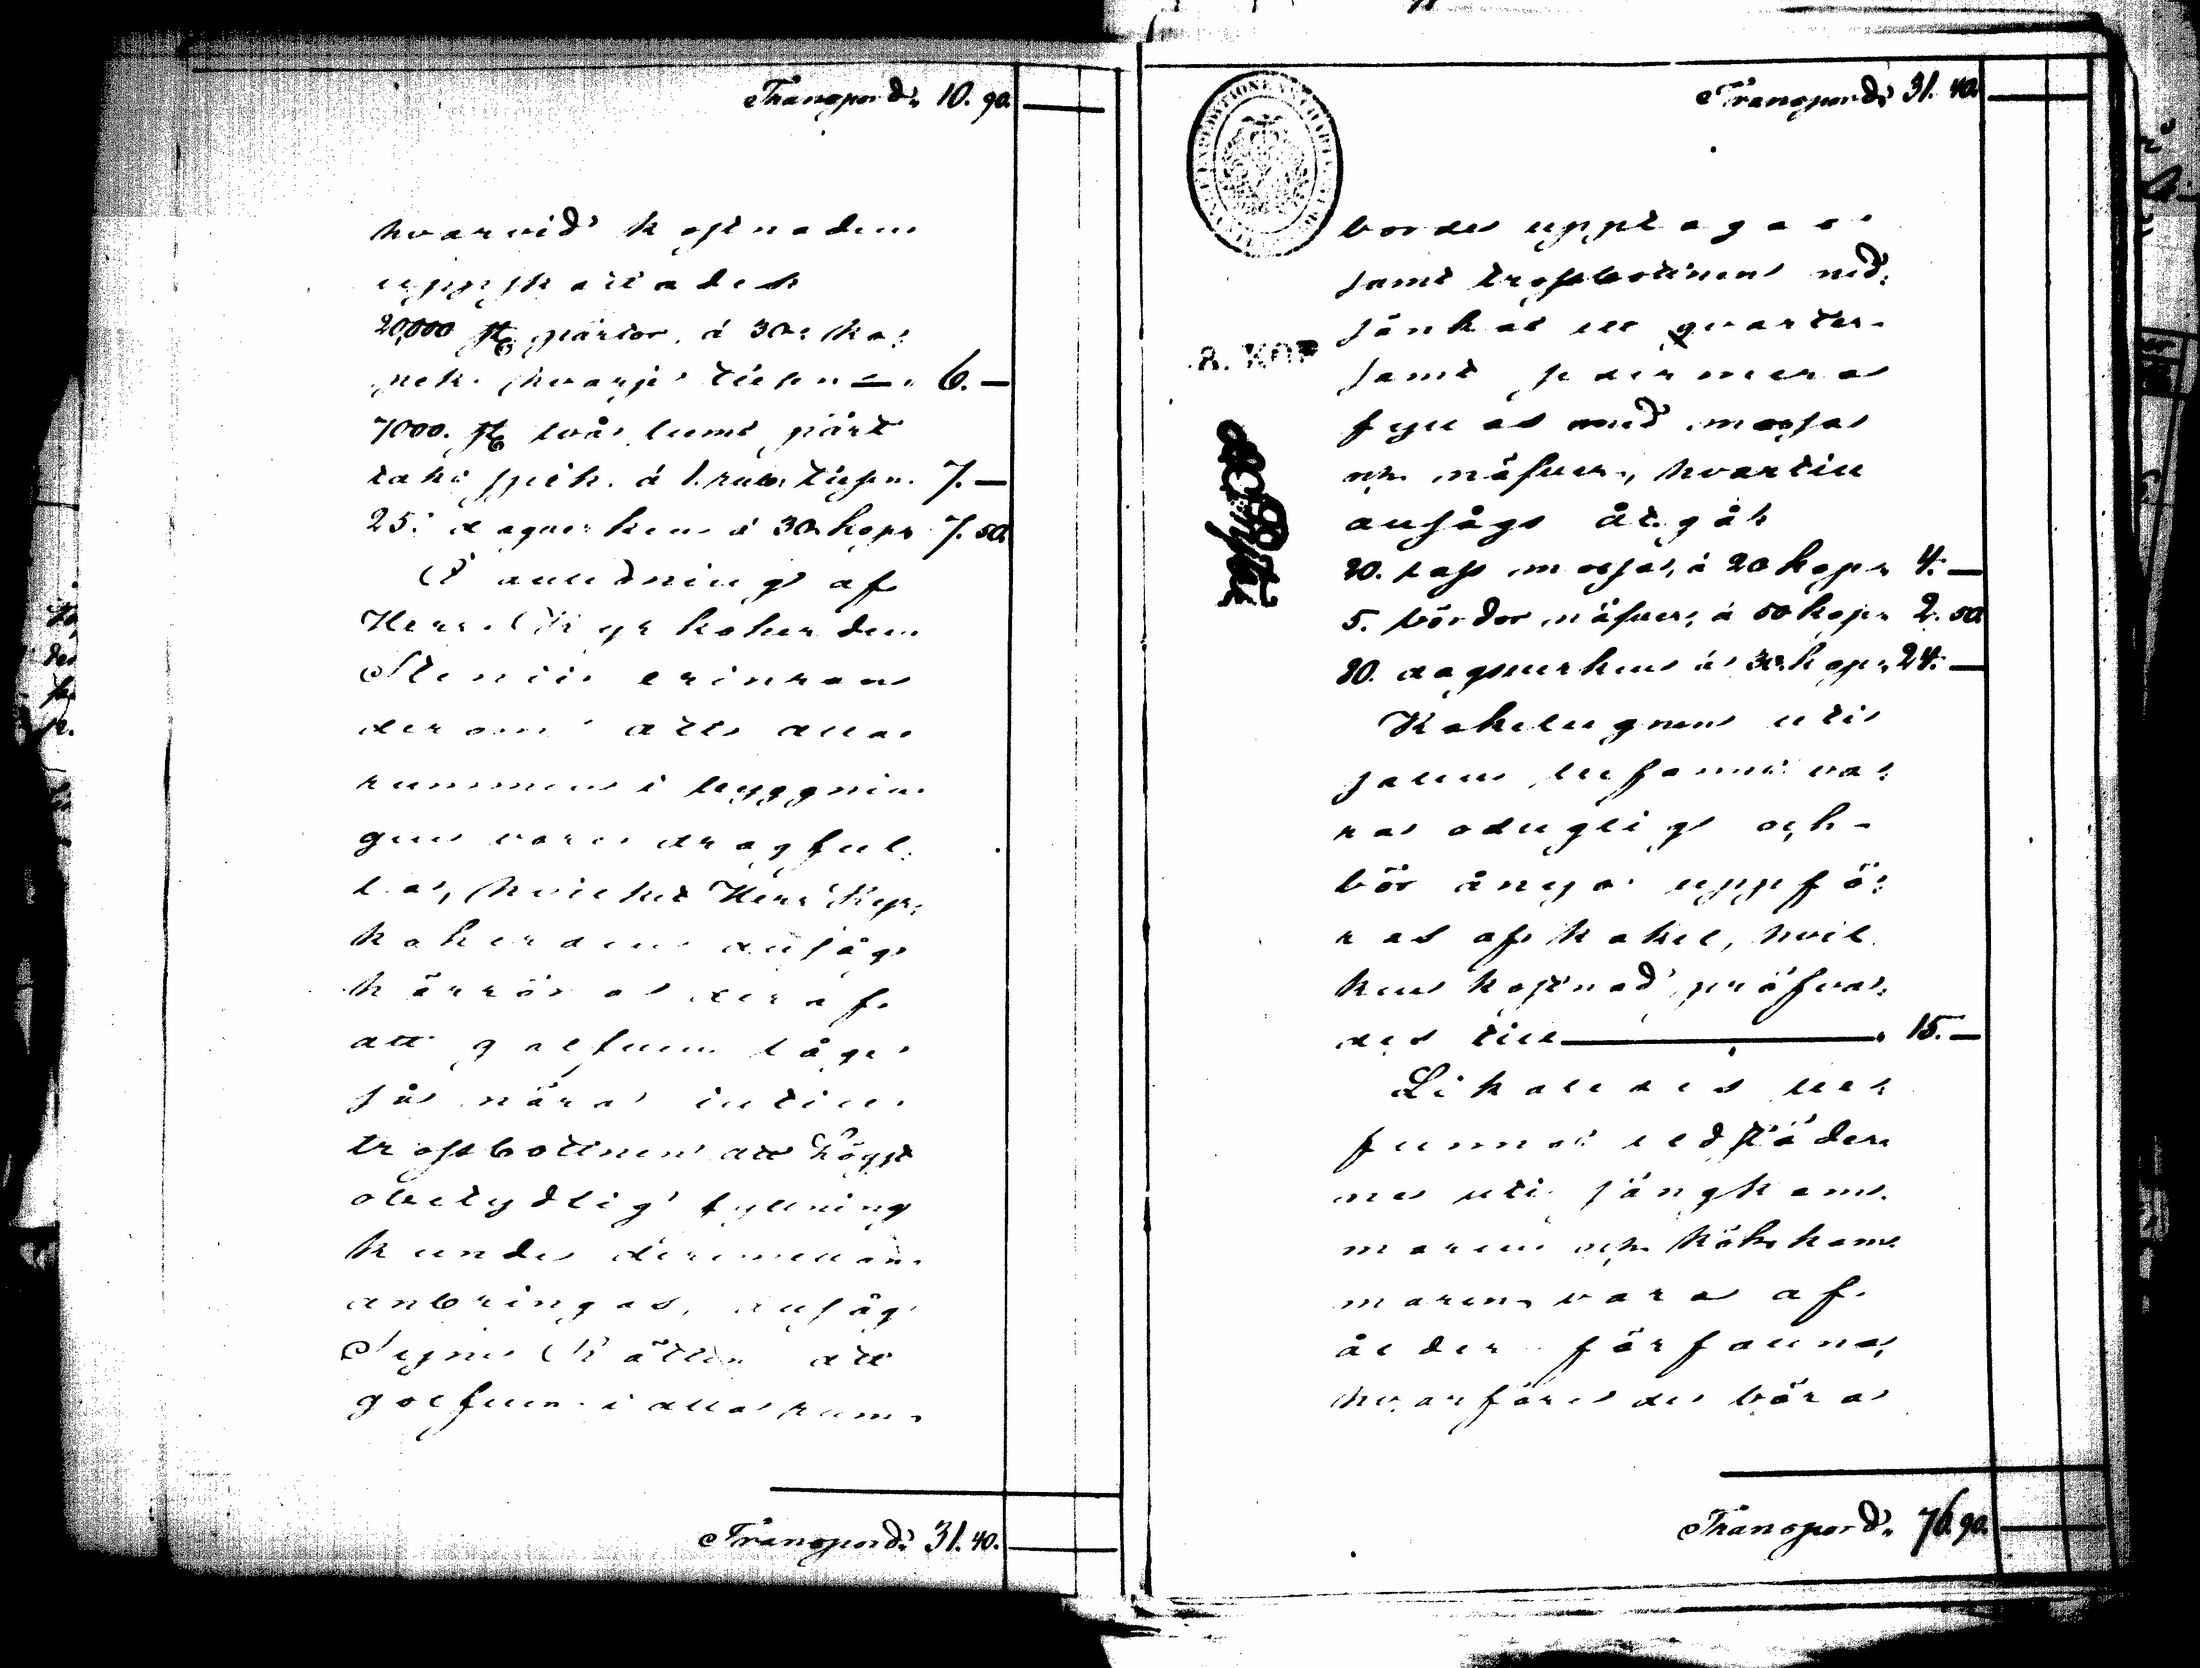 Transpord: 10. 90.
hvarvid kostnaden
uppskattades
20,000 st. pärtor, á 30. ko:
pek. hvarje tusen — 6. —
7000. st. två tums pärt
taks spik. á 1. rub. tusen. 7. —
25. dagsverken á 30 kop. 7. 50.
I anledning af
Herr Kyrkoherden
Stenii erinran
derom att alla
rummen i byggnin
gen voro dragful:
la, hvilket Herr Kyr:
koherden ansåg
härröra deraf
att golfven låge
så nära intill
trossbottnen att högst
obetydlig fyllning
kunde deremellan
anbringas, ansåg
Syne Rätten att
golfven i alla rum
Transpord: 31. 40.
Transpord: 31. 40.
8. KOP
borde upptagas
samt trossbottnen ned:
sänkas ett qvarter
samt sedermera
fyllas med mossa
och näfver, hvartill
ansågs åtgå
20. lass mossa, á 20 kop. 4. —
5. bördor näfver, á 50 kop. 2. 50.
80. dagsverken á 30. kop. 24. —
Kakelugnen uti
salen befanns va:
ra oduglig och
bör ånyo uppfö:
ras af kakel, hvil
ken kostnad pröfva:
des till — 15. —
Likaledes be
funnos eldstäder
ne uti sängkam
maren och kökskam
maren vara af
ålder förfallna,
hvarföre de böra
Transpord: 76. 90.